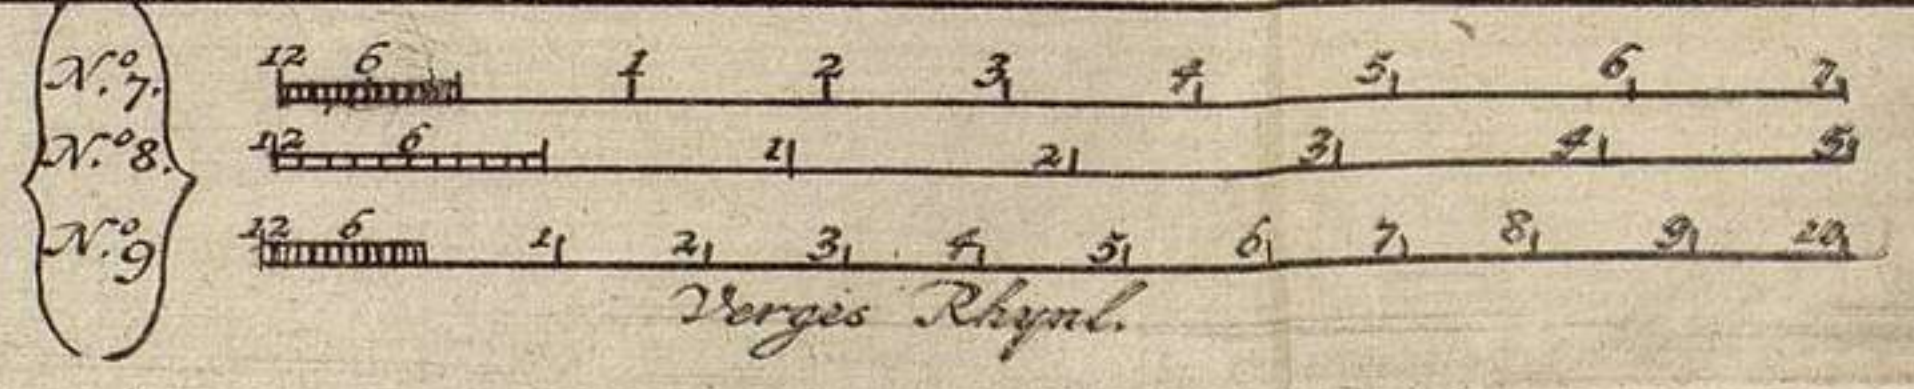 N.º 7. 12 6 1 2 3 4 5 6 7
N.º 8. 12 6 1 2 3 4 5
N.º 9 12 6 1 2 3 4 5 6 7 8 9 10
Verges Rhynl.